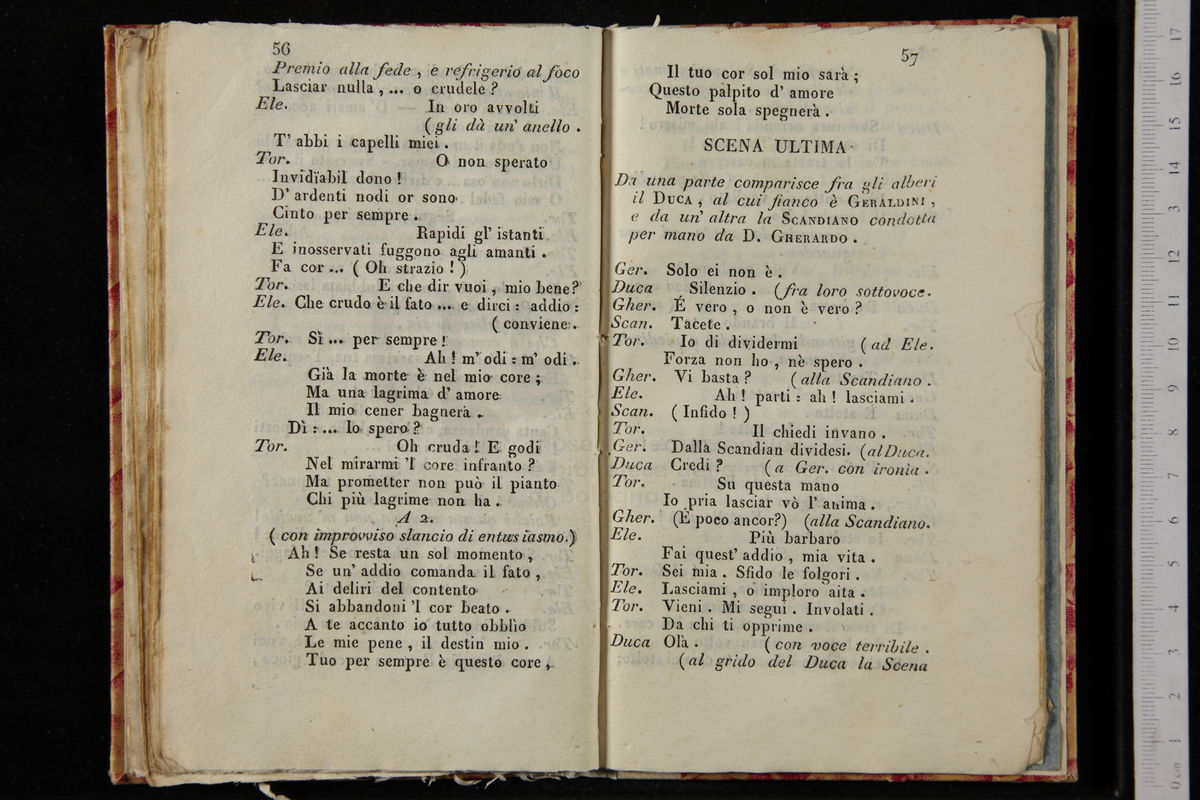 56
Premio alla fede , e refrigerio al foco
Lasciar nulla , ... o crudele ?
Ele. In oro avvolti
( gli dà un' anello .
T' abbi i capelli miei .
Tor. O non sperato
Invidïabil dono !
D' ardenti nodi or sono
Cinto per sempre .
Ele. Rapidi gl' istanti
E inosservati fuggono agli amanti .
Fa cor ... ( Oh strazio ! )
Tor. E che dir vuoi , mio bene?
Ele. Che crudo è il fato .... e dirci : addio :
( conviene .
Tor. Sì ... per sempre !
Ele. Ah ! m' odi : m' odi .
Già la morte è nel mio core ;
Ma una lagrima d' amore
Il mio cener bagnerà .
Dì : ... Io spero ?
Tor. Oh cruda ! E godi
Nel mirarmi 'l core infranto ?
Ma prometter non può il pianto
Chi più lagrime non ha .
A 2.
( con improvviso slancio di entusiasmo.)
Ah ! Se resta un sol momento ,
Se un' addio comanda il fato ,
Ai deliri del contento
Si abbandoni 'l cor beato .
A te accanto io tutto obblìo
Le mie pene , il destin mio .
Tuo per sempre è questo core ,
57
Il tuo cor sol mio sarà ;
Questo palpito d' amore
Morte sola spegnerà .
SCENA ULTIMA
Da una parte comparisce fra gli alberi
il DUCA , al cui fianco è GERALDINI ,
e da un' altra la SCANDIANO condotta
per mano da D. GHERARDO .
Ger. Solo ei non è .
Duca Silenzio . (fra loro sottovoce.
Gher. É vero , o non è vero ?
Scan. Tacete .
Tor. Io di dividermi ( ad Ele.
Forza non ho , nè spero .
Gher. Vi basta ? (alla Scandiano .
Ele. Ah ! parti : ah ! lasciami .
Scan. ( Infido ! )
Tor. Il chiedi invano .
Ger. Dalla Scandian dividesi. (al Duca.
Duca Credi ? ( a Ger. con ironia .
Tor. Su questa mano
Io pria lasciar vò l' anima .
Gher. (È poco ancor?) (alla Scandiano.
Ele. Più barbaro
Fai quest' addio , mia vita .
Tor. Sei mia . Sfido le folgori .
Ele. Lasciami , o imploro aita .
Tor. Vieni . Mi segui . Involati .
Da chi ti opprime .
Duca Olà . ( con voce terribile .
(al grido del Duca la Scena